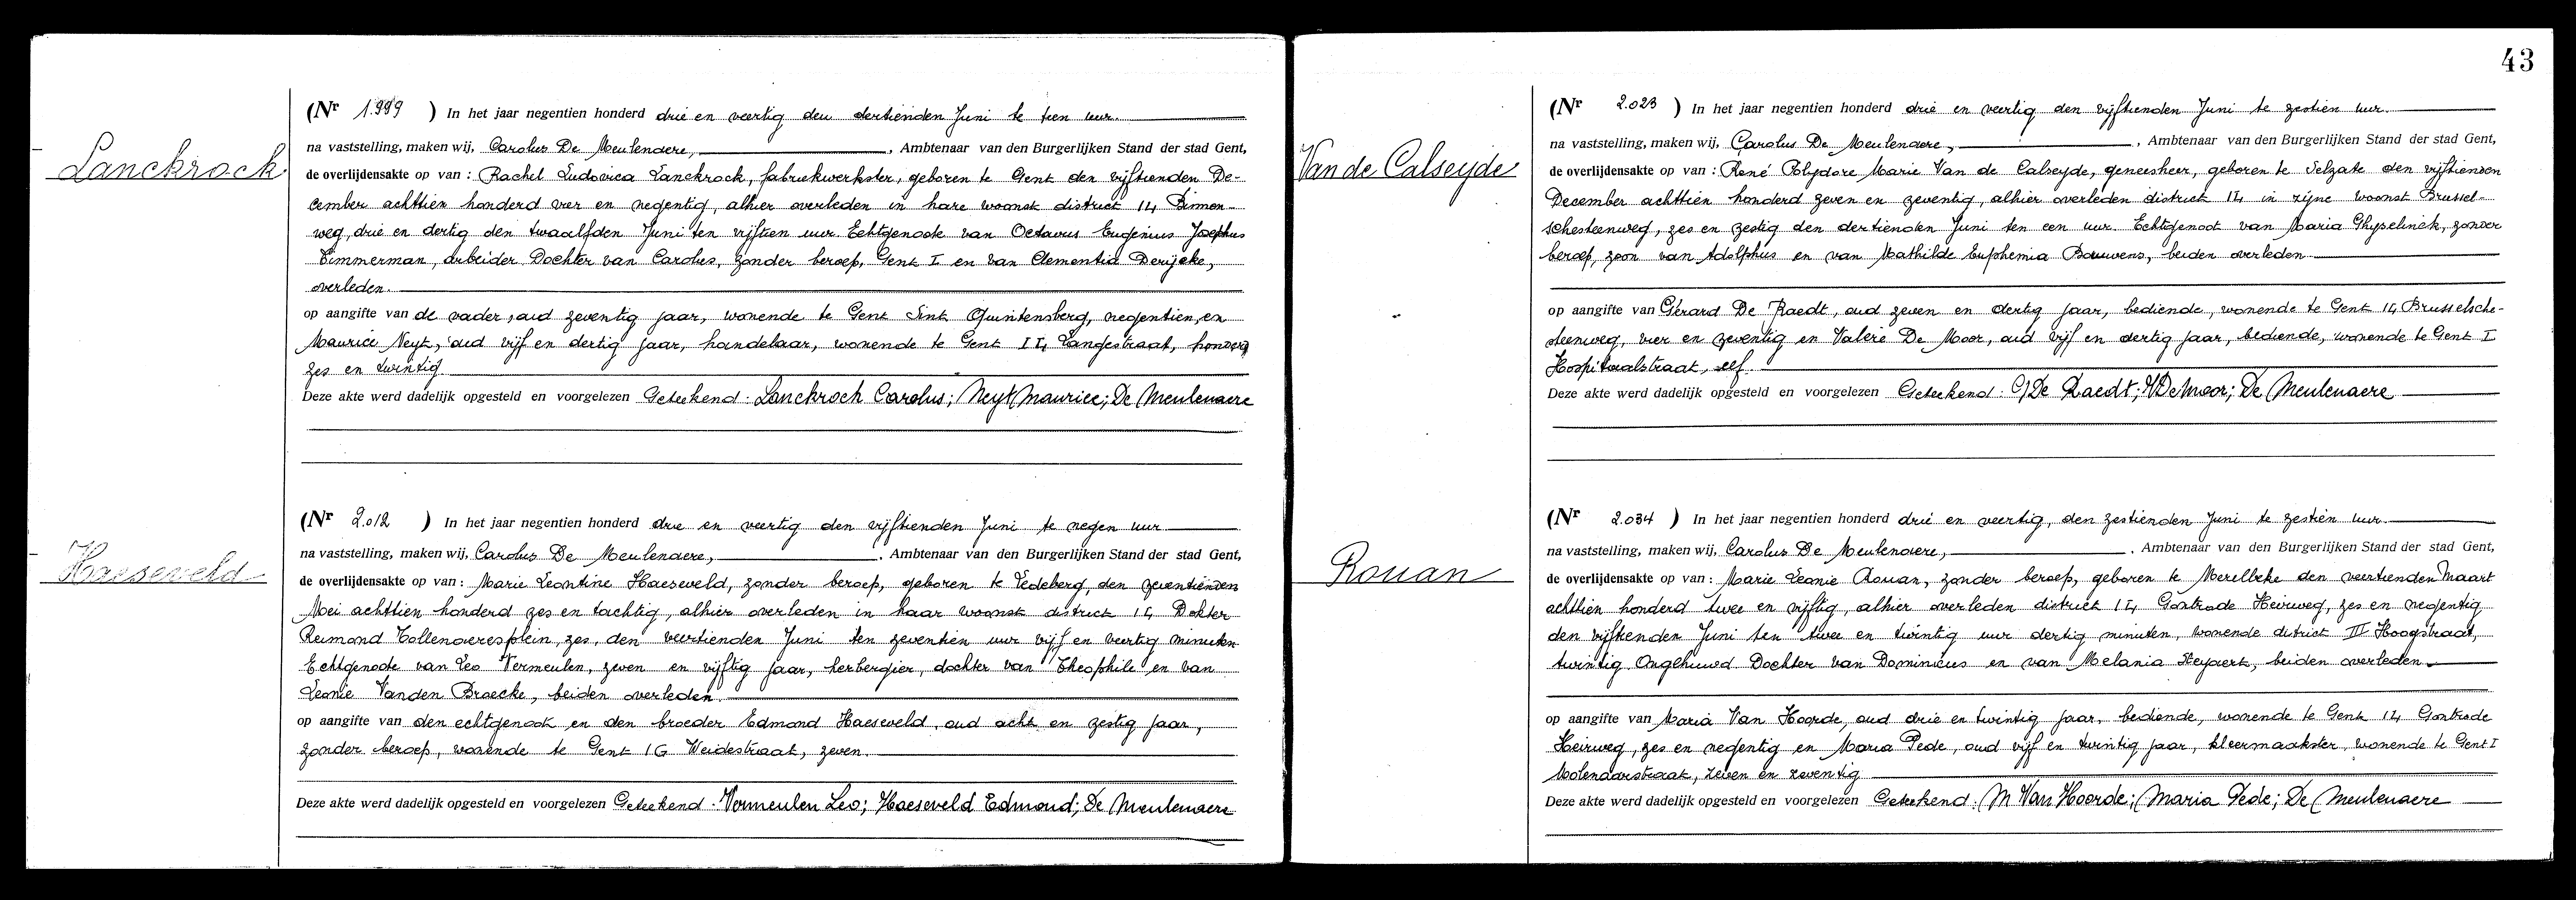 43
Lanckrock
(Nr 1.999 ) In het jaar negentien honderd drie en veertig den dertienden Juni te tien uur.
na vaststelling, maken wij, Carolus De Meulenaere, , Ambtenaar van den Burgerlijken Stand der stad Gent,
de overlijdensakte op van : Rachel Ludovica Lanckrock, fabriekwerkster, geboren te Gent den vijftienden De-
cember achttien honderd vier en negentig, alhier overleden in hare woonst district I4 Binnen-
weg, drie en dertig den twaalfden Juni ten vijftien uur Echtgenoote van Octavus Eugenius Josephus
Timmerman, arbeider Dochter van Carolus, zonder beroep, Gent I en van Clementia Derijcke,
overleden.
op aangifte van de vader, oud zeventig jaar, wonende te Gent Sint Quintensberg, negentien, en
Maurice Neyt, oud vijf en dertig jaar, handelaar, wonende te Gent I4 Langestraat, honderd
zes en twintig
Deze akte werd dadelijk opgesteld en voorgelezen Geteekend: Lanckrock Carolus; Neyt Maurice; De Meulenaere
Haeseveld
(Nr 2.012 ) In het jaar negentien honderd drie en veertig den vijftienden Juni te negen uur
na vaststelling, maken wij, Carolus De Meulenaere, , Ambtenaar van den Burgerlijken Stand der stad Gent,
de overlijdensakte op van : Marie Leontine Haeseveld, zonder beroep, geboren te Ledeberg, den zeventienden
Mei achttien honderd zes en tachtig, alhier overleden in haar woonst district I4 Dokter
Reimond Tollenaeresplein, zes, den veertienden Juni ten zeventien uur vijf en veertig minuten
Echtgenoote van Leo Vermeulen, zeven en vijftig jaar, herbergier, dochter van Theophile en van
Leonie Vanden Broecke, beiden overleden
op aangifte van den echtgenoot en den broeder Edmond Haeseveld, oud acht en zestig jaar,
zonder beroep, wonende te Gent IG Weidestraat, zeven.
Deze akte werd dadelijk opgesteld en voorgelezen Geteekend: Vermeulen Leo; Haeseveld Edmond; De Meulenaere
Van de Calseyde
(Nr 2.023 ) In het jaar negentien honderd drie en veertig den vijftienden Juni te zestien uur.
na vaststelling, maken wij, Carolus De Meulenaere, , Ambtenaar van den Burgerlijken Stand der stad Gent,
de overlijdensakte op van : René Polydore Marie Van de Calseyde, geneesheer, geboren te Selzate den vijftienden
December achttien honderd zeven en zeventig, alhier overleden district I4 in zijne woonst Brussel-
schesteenweg, zes en zestig den dertienden Juni ten een uur. Echtgenoot van Maria Ghyselinck, zonder
beroep, zoon van Adolphus en van Mathilde Euphemia Bauwens, beiden overleden
op aangifte van Gérard De Raedt, oud zeven en dertig jaar, bediende, wonende te Gent I4 Brusselsche-
steenweg, vier en zeventig en Valère De Moor, oud vijf en dertig jaar, bediende, wonende te Gent I
Hospitaalstraat, elf.
Deze akte werd dadelijk opgesteld en voorgelezen Geteekend: G De Raedt; V De Moor; De Meulenaere
Rouan
(Nr 2.034 ) In het jaar negentien honderd drie en veertig, den zestienden Juni te zestien uur.
na vaststelling, maken wij, Carolus De Meulenaere, , Ambtenaar van den Burgerlijken Stand der stad Gent,
de overlijdensakte op van : Marie Leonie Rouan, zonder beroep, geboren te Merelbeke den veertienden Maart
achttien honderd twee en vijftig, alhier overleden district I4 Gontrode Heirweg, zes en negentig
den vijftienden Juni ten twee en twintig uur dertig minuten, wonende district III Hoogstraat,
twintig Ongehuwd Dochter van Dominicus en van Melania Steyaert, beiden overleden
op aangifte van Maria Van Hoorde, oud drie en twintig jaar, bediende, wonende te Gent I4 Gontrode
Heirweg, zes en negentig en Maria Pede, oud vijf en twintig jaar, kleermaakster, wonende te Gent I
Molenaarstraat, zeven en zeventig
Deze akte werd dadelijk opgesteld en voorgelezen Geteekend: M Van Hoorde; Maria Pede; De Meulenaere